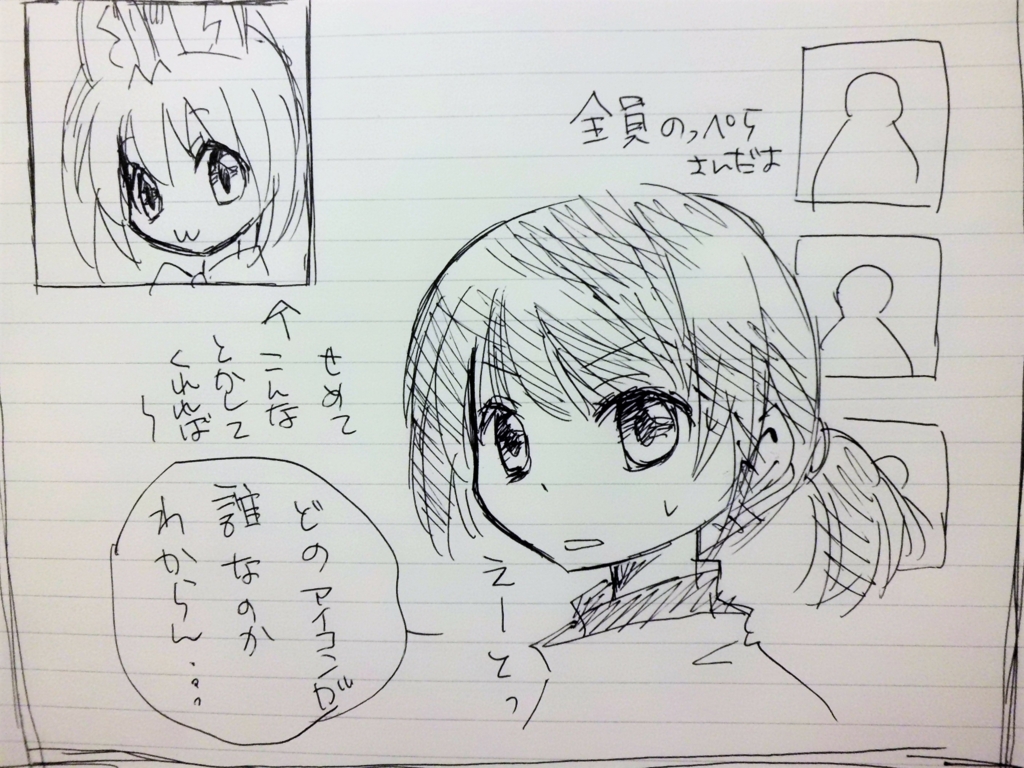 全員のっぺら
さんだよ
せめて
↑こんな
とかして
くれれば
〜
どのアイコンが
誰なのか
わからん…
えーとっ